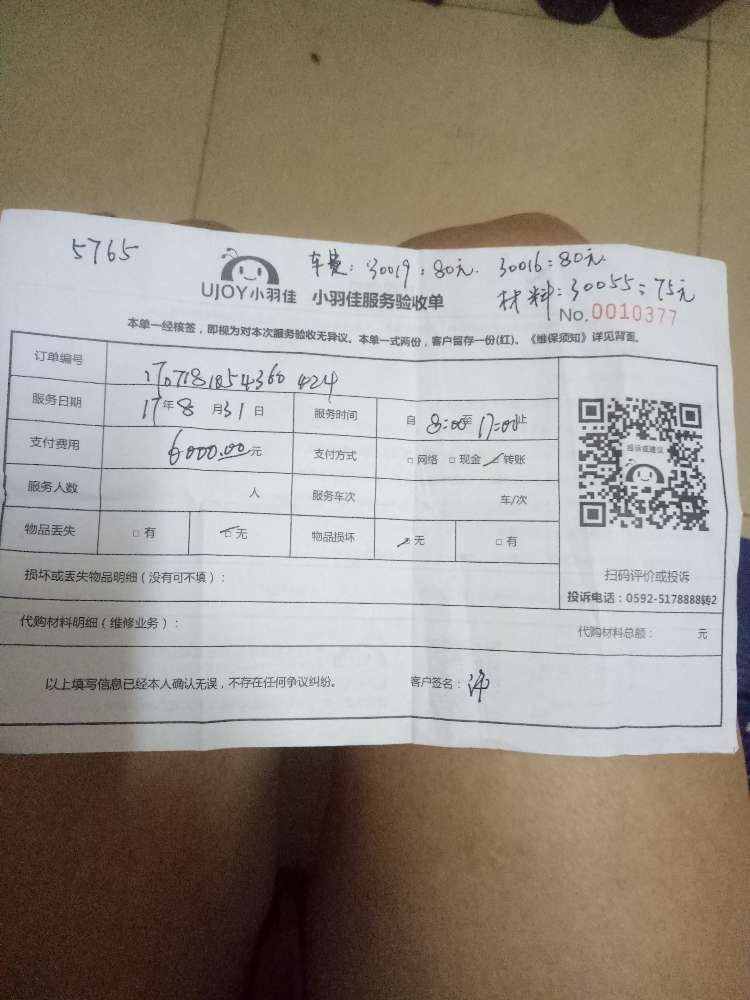 5765
车费：30019：80元. 30016：80元
材料：30055：75元
UJOY小羽佳 小羽佳服务验收单
No.0010377
本单一经核签，即视为对本次服务验收无异议。本单一式两份，客户留存一份(红)。《维保须知》详见背面。
订单编号 1707181854360424
服务日期 17年8月31日 服务时间 自8:00至17:00止
支付费用 6000.00元 支付方式 □网络 □现金 ☑转账
服务人数 人 服务车次 车/次
物品丢失 □有 ☑无 物品损坏 ☑无 □有
投诉或建议
扫码评价或投诉
投诉电话：0592-5178888转2
损坏或丢失物品明细（没有可不填）：
代购材料明细（维修业务）： 代购材料总额： 元
以上填写信息已经本人确认无误，不存在任何争议纠纷。 客户签名：